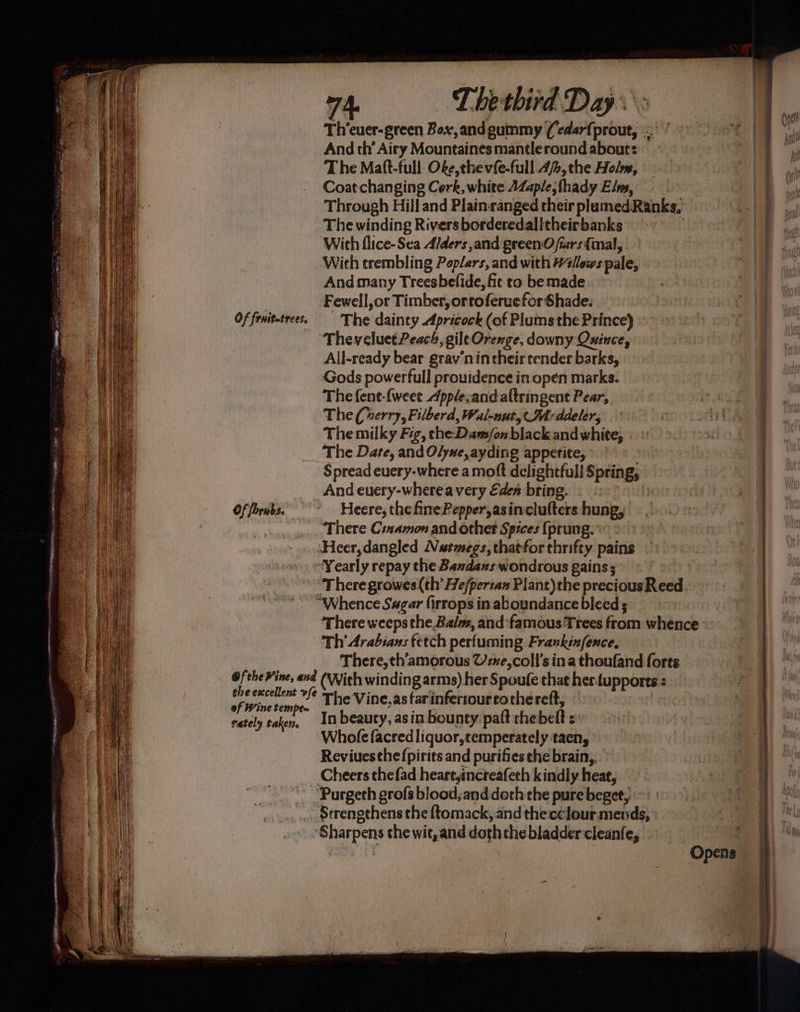 74. The third Day
Th'euer-green Box, and gummy Cedar ſprout,
And th' Airy Mountaines mantle round about:
The Maſt-full Oke, the vſe-full Aſh, the Holm,
Coat changing Cork, white Maple, ſhady Elm,
Through Hill and Plain ranged their plumed Ranks.
The winding Rivers bordered all their banks
With ſlice-Sea Alders, and green Oſiars ſmal,
With trembling Poplars, and with Willows pale,
And many Trees beſide, fit to be made
Fewell, or Timber, or to ſerue for Shade.
Of fruit-trees. The dainty Apricock (of Plums the Prince)
The veluet Peach, gilt Orenge, downy Quince,
All-ready bear grav'n in their tender barks,
Gods powerfull prouidence in open marks.
The ſent-ſweet Apple, and aſtringent Pear,
The Cherry, Filberd, Wal-nut, Meddeler,
The milky Fig, the Damſon black and white,
The Date, and Olyue, ayding appetite,
Spread euery-where a moſt delightfull Spring,
And euery-where a very Eden bring.
Of ſhrubs. Heere, the fine Pepper, as in cluſters hung,
There Cinamon and other Spices ſprung.
Heer, dangled Nutmegs, that for thrifty pains
Yearly repay the Bandans wondrous gains;
There growes (th' Heſperian Plant) the precious Reed
Whence Sugar ſirrops in aboundance bleed;
There weeps the Balm, and famous Trees from whence
Th' Arabians fetch perfuming Frankinſence.
There, th'amorous Vine, coll's in a thouſand ſorts
Of the Vine, and (With winding arms) her Spouſe that her ſupports:
the excellent vſe The Vine, as far inferiour to the reſt,
of Wine tempe-
rately taken. In beauty, as in bounty paſt the beſt:
Whoſe ſacred liquor, temperately taen,
Reviues the ſpirits and purifies the brain,
Cheers the ſad heart, increaſeth kindly heat,
Purgeth groſs blood, and doth the pure beget,
Strengthens the ſtomack, and the colour mends,
Sharpens the wit, and doth the bladder cleanſe,
Opens